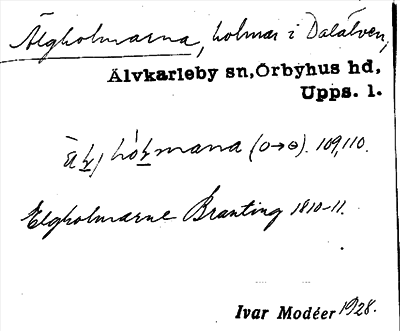 Älgholmarna, holmar i Dalälven,
Älvkarleby sn, Örbyhus hd,
Upps. l.
håḷmana (o→ɵ). 109,110.
Elgholmarne Branting 1810-11.
Ivar Modéer 1928.